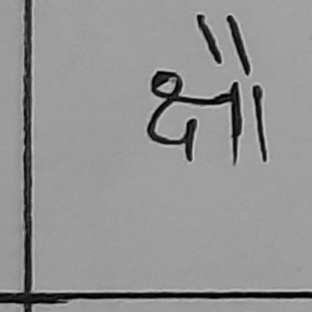 क्षौ